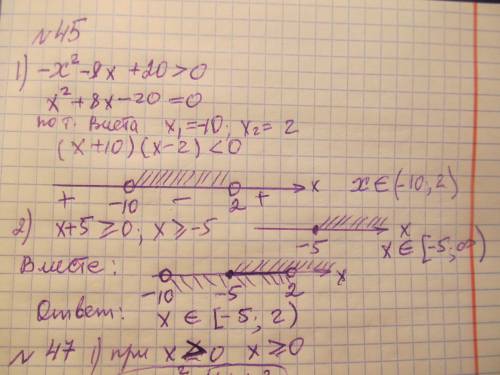 №45
1) -x²-8x+20>0
x²+8x-20=0
по т. Виета x₁=-10; x₂=2
(x+10)(x-2)<0
+ -10 - 2 + x x∈(-10; 2)
2) x+5≥0; x≥-5 -5 x
x∈[-5; ∞)
Вместе:
-10 -5 2 x
Ответ: x ∈ [-5; 2)
№ 47 1) при x≥0 x≥0